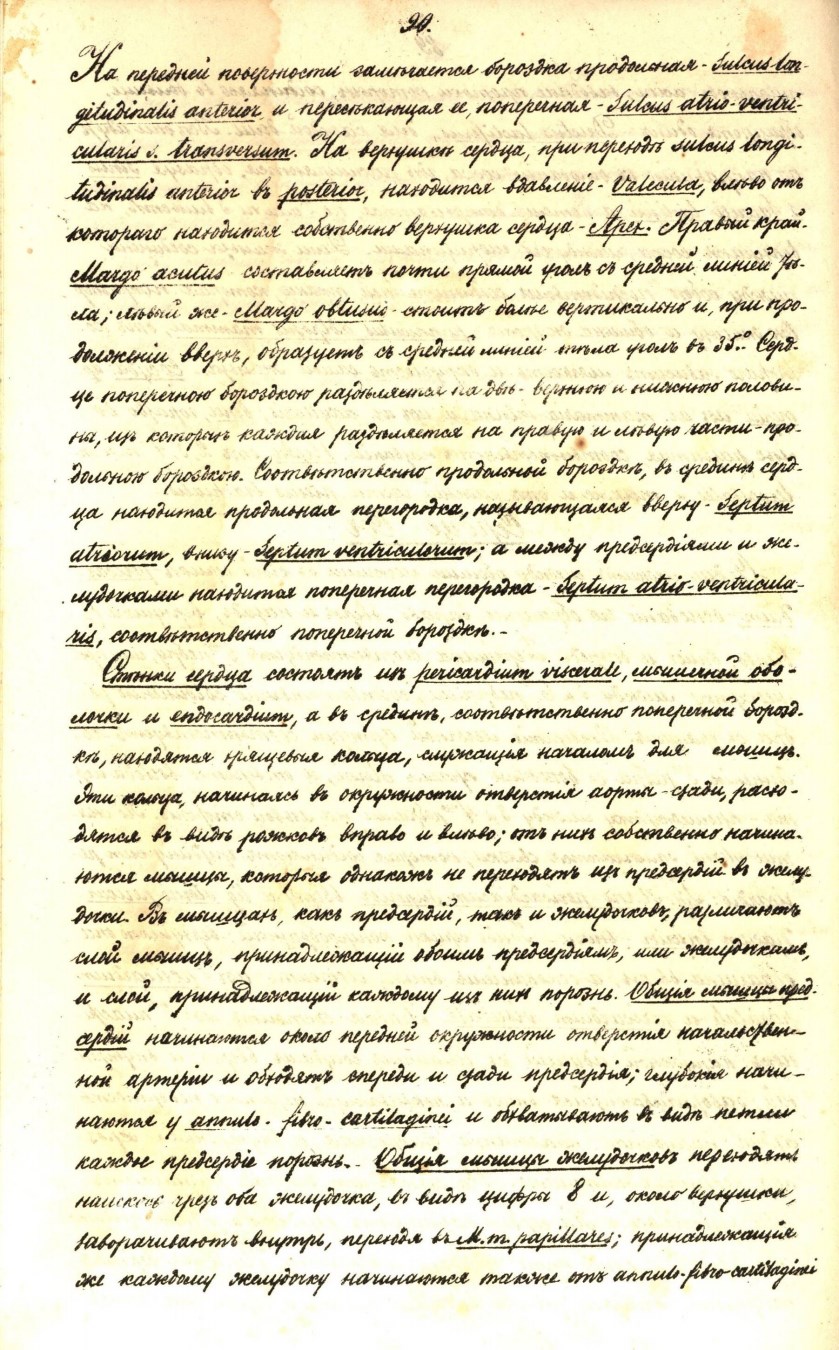 90.
На передней поверхности замѣчается бороздка продольная - Sulcus lon-
gitudinalis anterior и пересѣкающая ее, поперечная - Sulcus atrio-ventri-
cularis s. transversum. На верхушкѣ сердца, при переходѣ sulcus longi-
tudinalis anterior въ posterior, находится вдавленіе - Valecula, влѣво отъ
котораго находится собственно верхушка сердца - Apex. Правый край -
Margo acutus составляетъ почти прямой уголъ съ средней линіей тѣ-
ла; лѣвый же - Margo obtusus - стоитъ болѣе вертикально и, при про-
долженіи вверхъ, образуетъ съ средней линіей тѣла уголъ въ 35.° Серд-
це поперечною бороздкою раздѣляется на двѣ - верхнюю и нижнюю полови-
ны, изъ которыхъ каждая раздѣляется на правую и лѣвую части - про-
дольною бороздкою. Соотвѣтственно продольной бороздкѣ, въ срединѣ серд-
ца находится продольная перегородка, называющаяся вверху - Septum
atriorum, внизу - Septum ventriculorum; а между предсердіями и же-
лудочками находится поперечная перегородка - Septum atrio-ventricula-
ris, соотвѣтственно поперечной бороздкѣ. -
Стѣнки сердца состоятъ изъ pericardium viscerale, мышечной обо-
лочки и endocardium, а въ срединѣ, соотвѣтственно поперечной борозд-
кѣ, находятся хрящевыя кольца, служащія началомъ для мышцъ.
Эти кольца, начинаясь въ окружности отверстія аорты - сзади, расхо-
дятся въ видѣ рожковъ вправо и влѣво; отъ нихъ собственно начина-
ются мышцы, которыя однакожъ не переходятъ изъ предсердій въ желу-
дочки. Въ мышцахъ, какъ предсердій, такъ и желудочковъ, различаютъ
слой мышцъ, принадлежащій обоимъ предсердіямъ, или желудочкамъ,
и слой, принадлежащій каждому изъ нихъ порознь. Общія мышцы пред-
сердій начинаются около передней окружности отверстія начальствен-
ной артеріи и обходятъ спереди и сзади предсердія; глубокія начи-
наются у annulo-fibro-cartilaginei и обхватываютъ въ видѣ петли
каждое предсердіе порознь. - Общія мышцы желудочковъ переходятъ
наискось чрезъ оба желудочка, въ видѣ цифры 8 и, около верхушки,
заворачиваютъ внутрь, переходя въ M.m. papillares; принадлежащія
же каждому желудочку начинаются также отъ annulo-fibro-cartilaginei